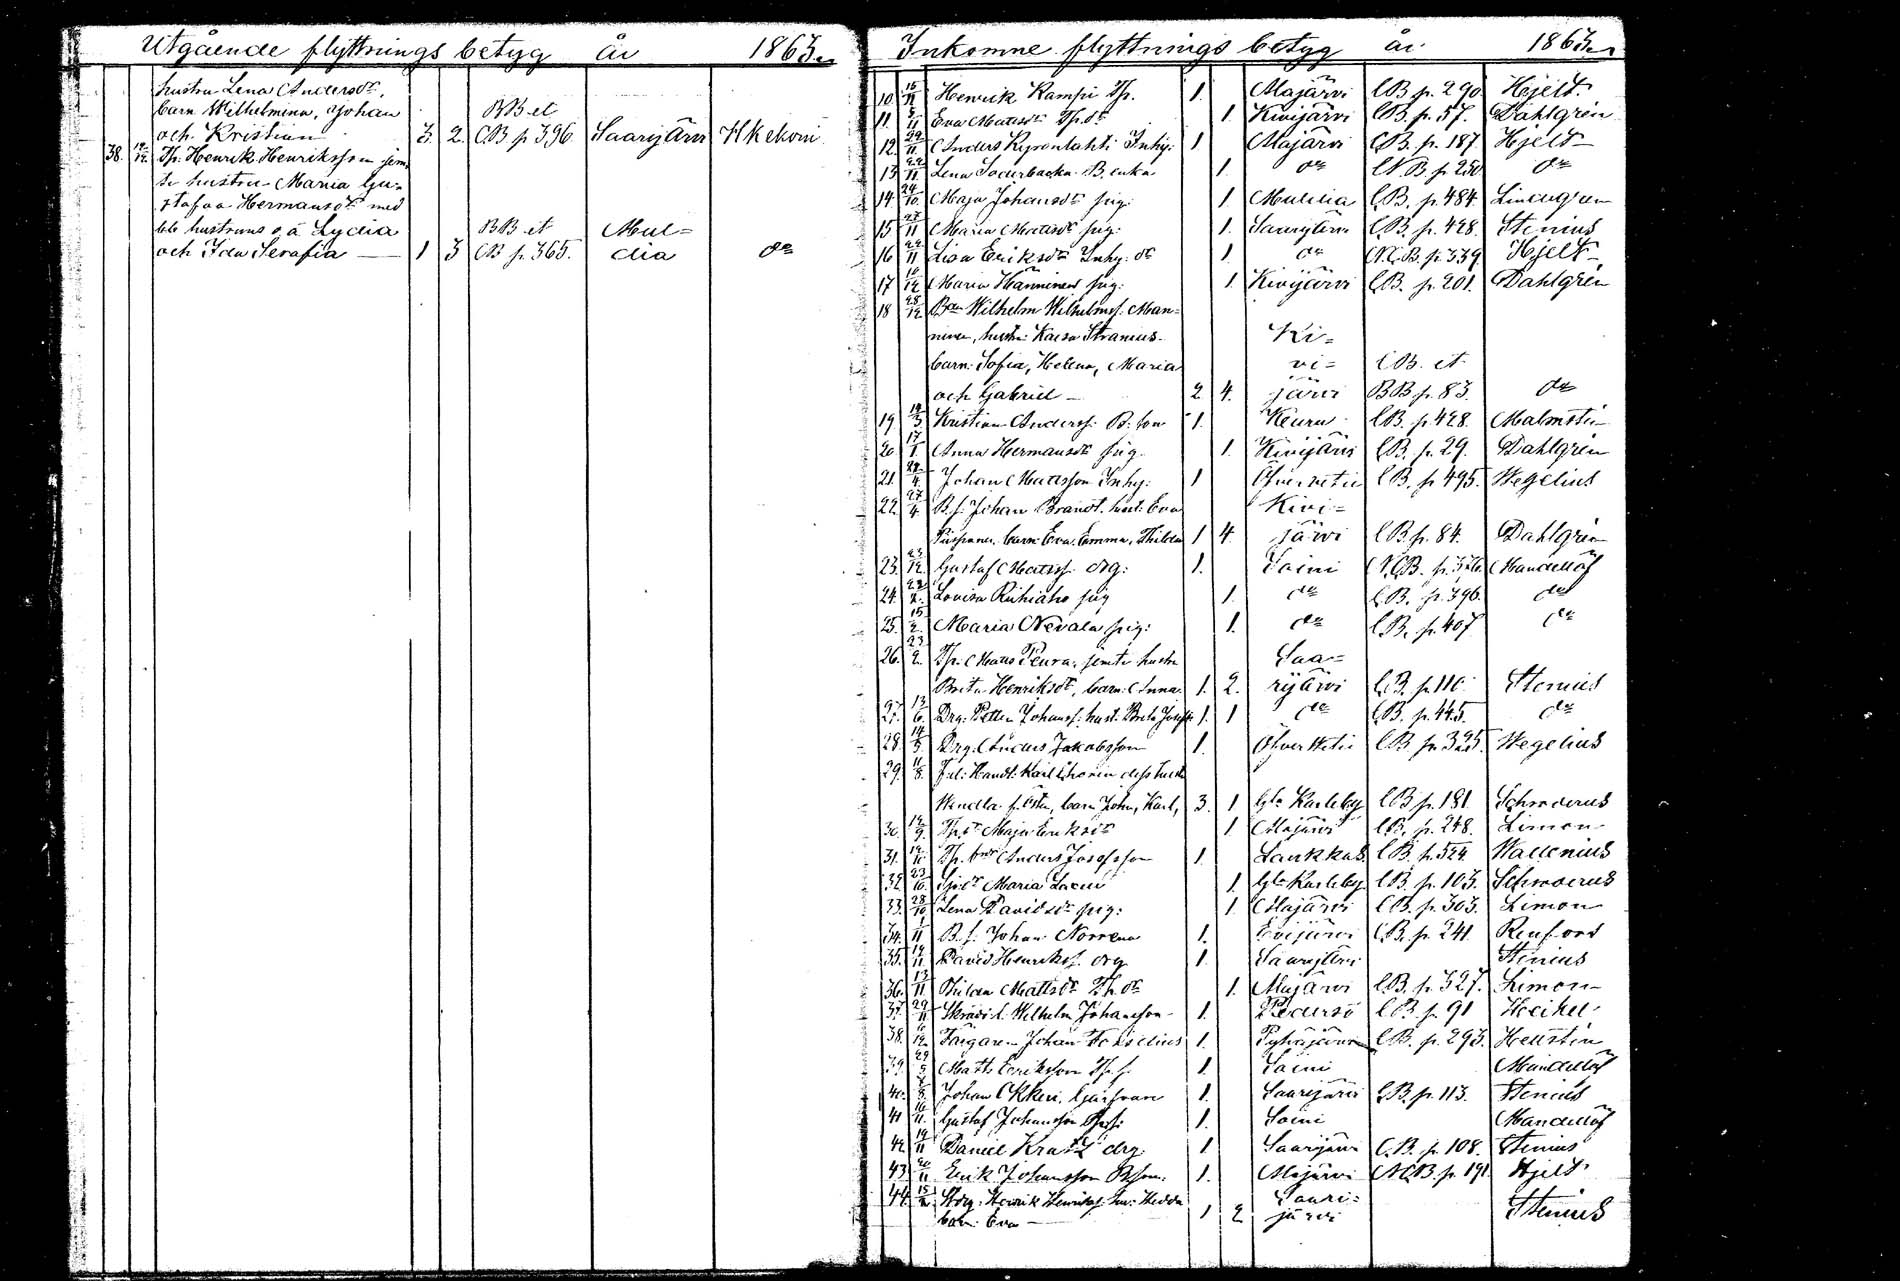 Utgående flyttnings betyg år 1863.
hustru Lena Andersdr,
barn Wilhelmina, Johan BB et
och Kristian 3. 2. CB p 396 Saarijärvi H Kekoni
38. Tp. Henrik Henriksson jem-
te hustru Maria Gu-
stafva Hermansdr med
hustruns o. ä. Lydia BB et Mul=
och Ida Serafia — 1 3 CB p. 365. dia do
Inkomne flyttnings betyg år 1863.
10. 15/11 Henrik Kampi Tp. 1. Alajärvi CB p. 290 Hjelt
11. 5/11 Eva Mattsdr Tp.dr 1. Kivijärvi CB. p. 57. Dahlgrén
12. 22/11 Anders Kyrönlahti Inhy: 1 Alajärvi CB. p. 187. Hjelt
13 22/11 Lena Söderbacka B. enka 1. do N.B. p. 250 do
14. 24/10 Maja Johansdr pig: 1 Multia CB. p. 484. Lindegren
15 27/11 Maria Mattsdr pig: 1. Saarijärvi CB. p. 428. Stenius
16 22/11 Lisa Eriksdr Inhy: dr 1 do N.C.B. p. 339. Hjelt
17 10/12 Maria Hänninen pig: 1. Kivijärvi CB. p. 201. Dahlgrén
18 28/12 Bon Wilhelm Wilhelmss. Man=
ninen, hustr: Kaisa Stranius Ki=
barn: Sofia, Helena, Maria vi= CB. et
och Gabriel — 2 4. järvi BB p. 83. do
19 Kristian Anderss. B. son 1. Keuru CB. p. 428. Malmstén
20 17/1 Anna Hermansdr pig. 1. Kivijärvi CB. p. 29. Dahlgrén
21. Johan Mattsson Inhy: 1 CB. p 495. Wegelius
22. 27/4 B.s. Johan Brandt. hust: Eva Kivi=
barn: Eva, Emma, Thilda 1 4. järvi CB p. 84. Dahlgrén
23. 23/12. Gustaf Mattss. drg: 1. Soini N.CB. p. 326. Mandellöf
24. Lovisa Riihiaho pig 1. do CB. p. 396. do
25. 15/2. Maria Nevala pig: 1. do CB. p. 407 do
26. 23/2. Tp. Matts Peura, jemte hustru Saa=
Brita Henriksdr, barn: Anna. 1. 2. rijärvi CB. p. 110. Stenius
27. 13/6. Drg: Petter Johanss. hust: Brita 1. 1 do CB. p. 445. do
28. 14/5. Drg: Anders Jakobsson 1. CB p. 325. Wegelius
29. 11/8. Karl dess hustru
Wendla barn John, Karl, 3. 1 Gla Karleby CB p. 181. Schroderus
30. 12/9. Tp.dr Maja Eriksdr 1 Alajärvi CB. p. 248. Limon
31. Tp. Anders Josefsson 1. Laukkas CB. p. 524. Wallenius
32. 23/10. Maria 1. Gla Karleby CB. p. 103. Schroderus
33. 28/10 Lena Davidsdr pig: 1. Alajärvi CB. p. 303. Limon
34. 1/11 B.s. Johan Norrena 1. Evijärvi CB. p. 241. Renfors
35. David Henrikss. drg 1. Saarijärvi Stenius
36. 13/11 Thilda Mattsdr Tp.dr 1. Alajärvi CB. p. 327. Limon
37. 29/11 Wilhelm Johansson 1. Pedersö CB p. 91 Heikel
38. Färgaren Johan 1. Pyhäjärvi CB. p. 293. Hellstén
39. 29/5 Matts Eriksson Tp.s. 1. Soini Mandellöf
40. Johan 1. Saarijärvi CB. p. 113. Stenius
41 16/11. Gustaf Johansson 1. Soini Mandellöf
42 19/11 Daniel Kratz drg 1 Saarijärvi C.B. p. 108. Stenius
43. 20/11 Erik Johansson Bson. 1. Alajärvi NCB. p. 191. Hjelt
44. 15/2 Henrik Henrikss. hu: Hedda Saari=
barn: Eva — 1 2 järvi Stenius